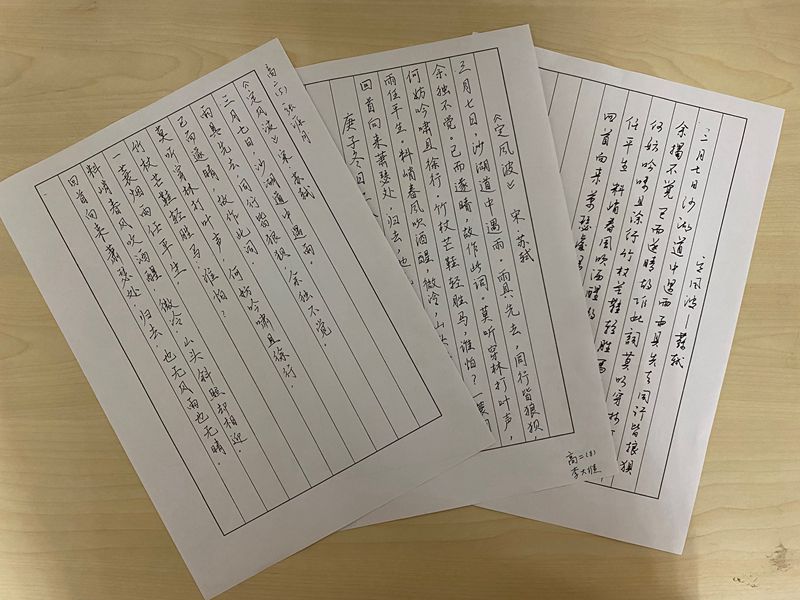 高二(5) 张
《定风波》宋 苏轼
三月七日,沙湖道中遇雨。
雨具先去,同行皆狼狈,余独不觉。
已而遂晴,故作此词
莫听穿林打叶声,何妨吟啸且徐行
竹杖芒鞋轻胜马,谁怕?
一蓑烟雨任平生。
料峭春风吹酒醒,微冷,山头斜照却相迎。
回首向来萧瑟处,归去,也无风雨也无晴。
《定风波》 宋 苏轼
三月七日,沙湖道中遇雨。雨具先去,同行皆狼狈,
余独不觉。已而遂晴,故作此词。莫听穿林打叶声,
何妨吟啸且徐行。竹杖芒鞋轻胜马,谁怕?一蓑
雨任平生。料峭春风吹酒醒,微冷,山头
回首向来萧瑟处,归去,也
庚子冬日
高二(8)
李大维
定风波—蘇軾
三月七日沙湖道中遇雨雨具先去同行皆狼狈
余独不觉已而遂晴故作此詞莫听穿林
何妨吟啸且徐行竹杖芒鞋轻胜马
任平生料峭春风吹酒醒微
回首向来萧瑟處